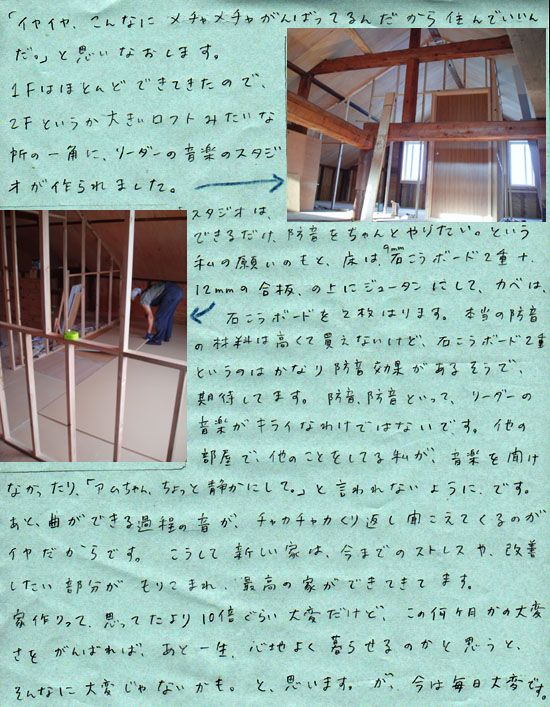 「イヤイヤ、こんなに メチャメチャがんばってるんだから 住んでいいん
だ。」と思いなおします。
1Fはほとんど できてきたので、
2Fというか 大きいロフト みたいな
所の一角に、リーダーの音楽のスタジ
オが作られました。
スタジオは、
できるだけ、防音をちゃんとやりたい。という
私の願いのもと、床は、9mm石こうボード2重+、
12mmの合板、の上にジュータンにして、カベは、
石こうボードを2枚はります。本当の防音
の材料は高くて買えないけど、石こうボード2重
というのはかなり防音効果があるそうで、
期待してます。防音、防音といって、リーダーの
音楽がキライなわけではないです。他の
部屋で、他のことをしてる私が、音楽を聞け
なかったり、「アムちゃん、ちょっと静かにして。」と言われないように、です。
あと、曲ができる過程の音が、チャカチャカくり返し聞こえてくるのが
イヤだからです。こうして新しい家は、今までのストレスや、改善
したい部分がもりこまれ、最高の家ができてきてます。
家作りって、思ってたより10倍ぐらい大変だけど、この何ヶ月かの大変
さをがんばれば、あと一生、心地よく暮らせるのかと思うと、
そんなに大変じゃないかも。と、思います。が、今は毎日大変です。